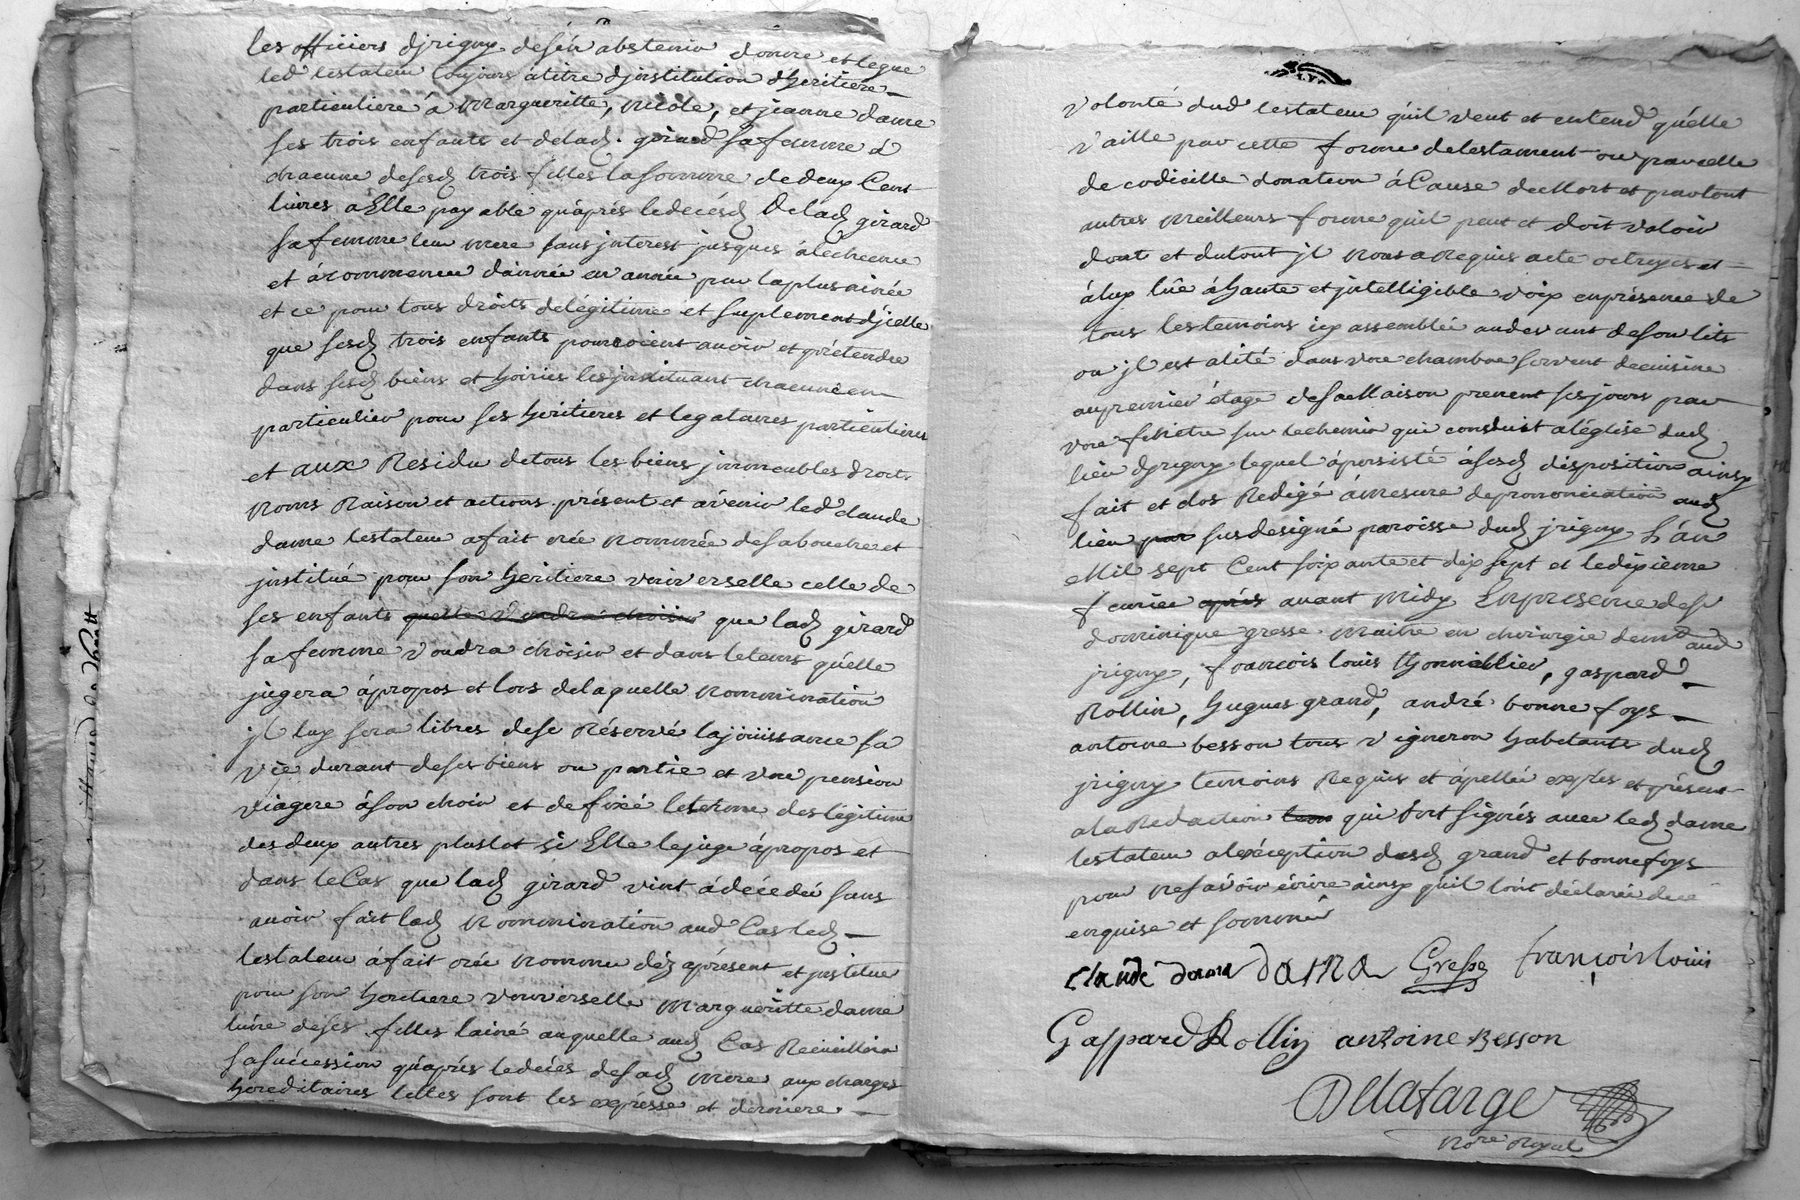 les officiers djrigny desén abstenir donne et legue
led testateur toujours atitre djnstitution dheritiere
particuliere á Margueritte, Nicole, et jeanne dame
ses trois enfants et delad. girard sa femme á
chacune desesd trois filles lasomme dedeux Cent
livres a Elle payable quáprés ledecésd Delad girard
sa femme leur mere sans jnterest jusques álecheance
et ácommencer dánnée en année par laplus ainée
et ce pour tous droits delégitime et suplement djcelle
que sesd trois enfants pourroient avoir et prétendre
dans sesd biens et hoiries lesjnstituant chacune en
particulier pour ses heritieres et legataires particulieres
et aux Residu detous les biens jmmeubles droits
Noms Raison et actions présent et avenir led claude
dame testateur afait crée nommée desabouche et
jnstitué pour son heritiere universelle celle de
ses enfants quelle voudra choisir que lad girard
sa femme voudra choisir et dans letems quélle
jugera ápropos et lors delaquelle nommination
jl luy sera libres dese Réservé lajouissance sa
vie durant deses biens ou partie et une pension
viagere áson choix et defixé leterme des légitime
des deux autres plustot si Elle lejuge ápropos et
dans leCas que lad girard vint ádécedé sans
avoir fait lad Nommination aud Cas led
testateur áfait crée nommée déz aprésent et jnstitue
pour son heritiere universelle Margueritte dame
lune deses filles lainé auquelle aud Cas Recueillira
sasuccession quáprés ledécés desad mere aux charges
hereditaires telles sont les expresse et derniere
volonté dud testateur quíl veut et entend quélle
vaille par cette forme detestament ou parcelle
de codicille donation áCause deMort et partout
autres meilleurs forme quíl peut et doit valoir
dont et dutout jl nous a Requis acte octroyés et
áluy lûe áhaute et jntelligible voix enprésence de
tous lestemoins icy assemblée audevant deson lits
ou jl est alité dans une chambre servant decuisine
aupremier étage desaMaison prenent ses jours par
une fenetre sur lechemin qui conduit aléglise dud
lieu djrigny lequel ápersisté ásesd disposition ainsy
fait et clos Redigé ámesure deprononciation aud
lieu par susdesigné paroisse dud jrigny L'án
Mil sept Cent soixante et dix sept et ledixieme
fevrier aprés avant midy Enpresence de sr
dominique gresse maitre en chirurgie demt aud
jrigny, françois louis thonnellier, gaspard
Rollin, hugues grand, andré bonnefoys
antoine besson tous vigneron habitants dud
jrigny temoins Requis et ápellée exprés et présent
alaRedaction tem qui ont signés avec led dame
testateur aléxception desd grand et bonnefoys
pour nesavoir écrire ainsy quíl lónt déclarée dece
enquise et sommé
claude dame DAMA Gresse françois louis
Gaspard Rollin antoine Besson
Delafarge
Nore Royal